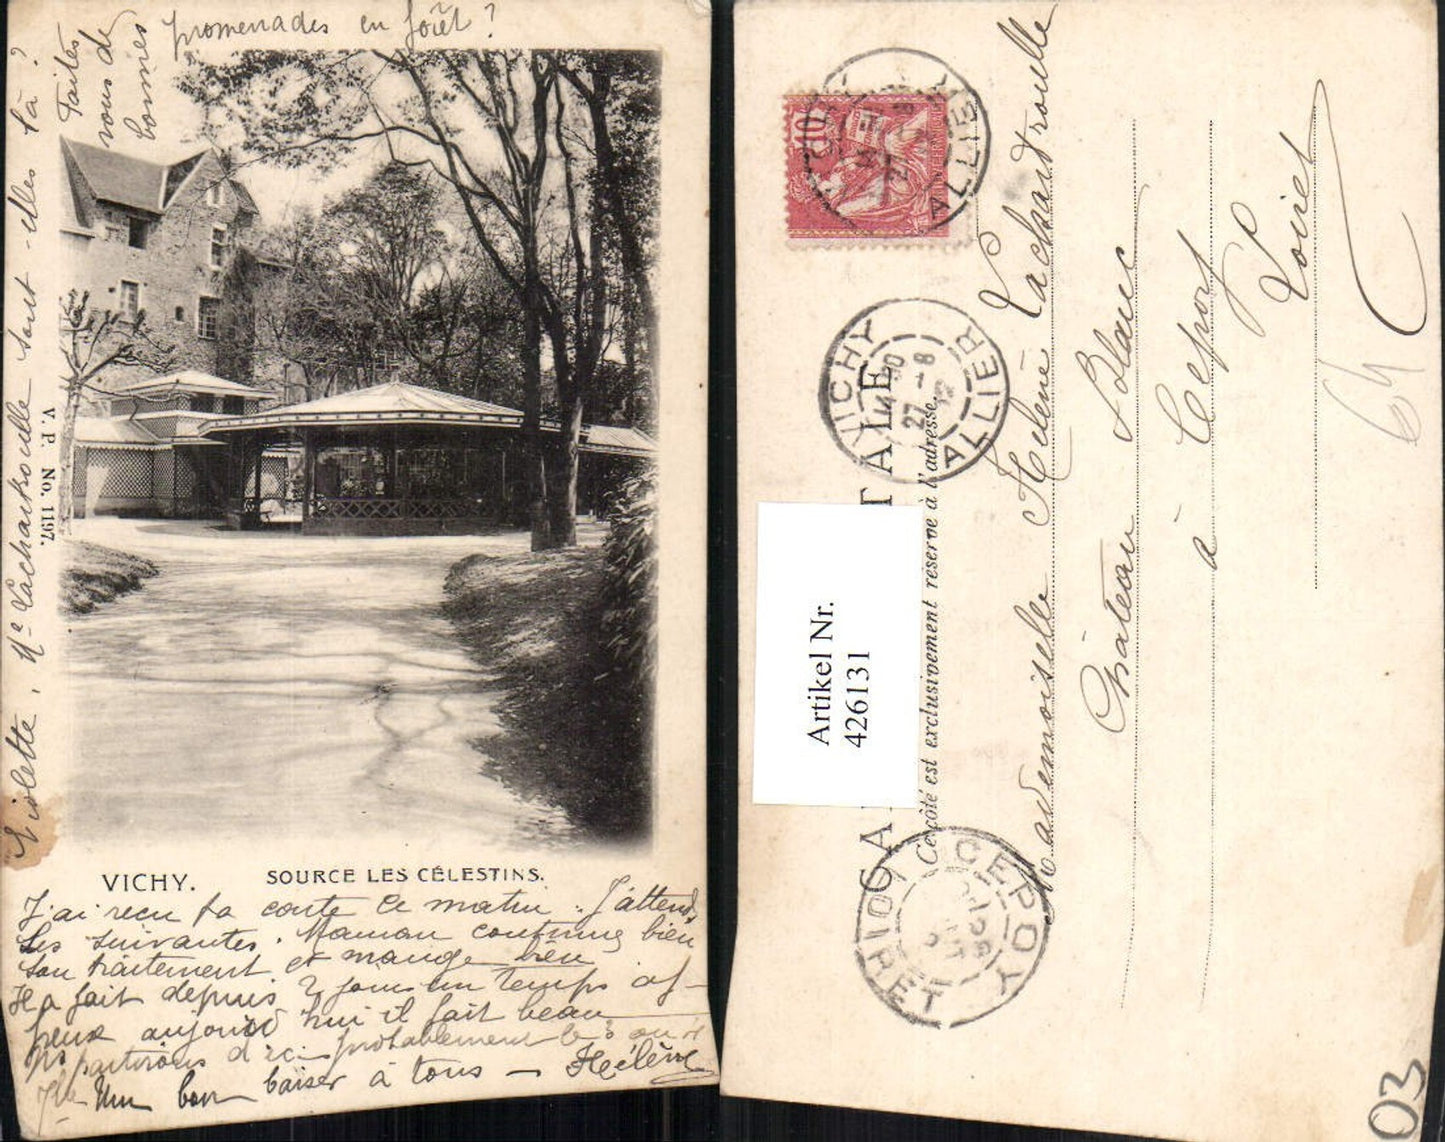 promenades en forêt ?
Faites
vous de
bonnes
Violette, Me Lachaudroulle sont-elles là ?
V. P. No. 1197.
VICHY. SOURCE LES CÉLESTINS.
J'ai reçu ta carte ce matin. J'attends
les suivantes. Maman continue bien
son traitement et mange bien
Il a fait depuis 2 jours un temps af-
freux aujourd'hui il fait beau
ns partirons d'ici probablement le 3 ou
Un bon baiser à tous — Hélène
10
VICHY ALLIER
VICHY ALLIER
27 -8 02
CARTE POSTALE
Ce côté est exclusivement réservé à l'adresse.
Mademoiselle Helène Lachaudroulle
Château Blanc
à Cepoy
Loiret
CEPOY
LOIRET
Artikel Nr.
426131
64
03